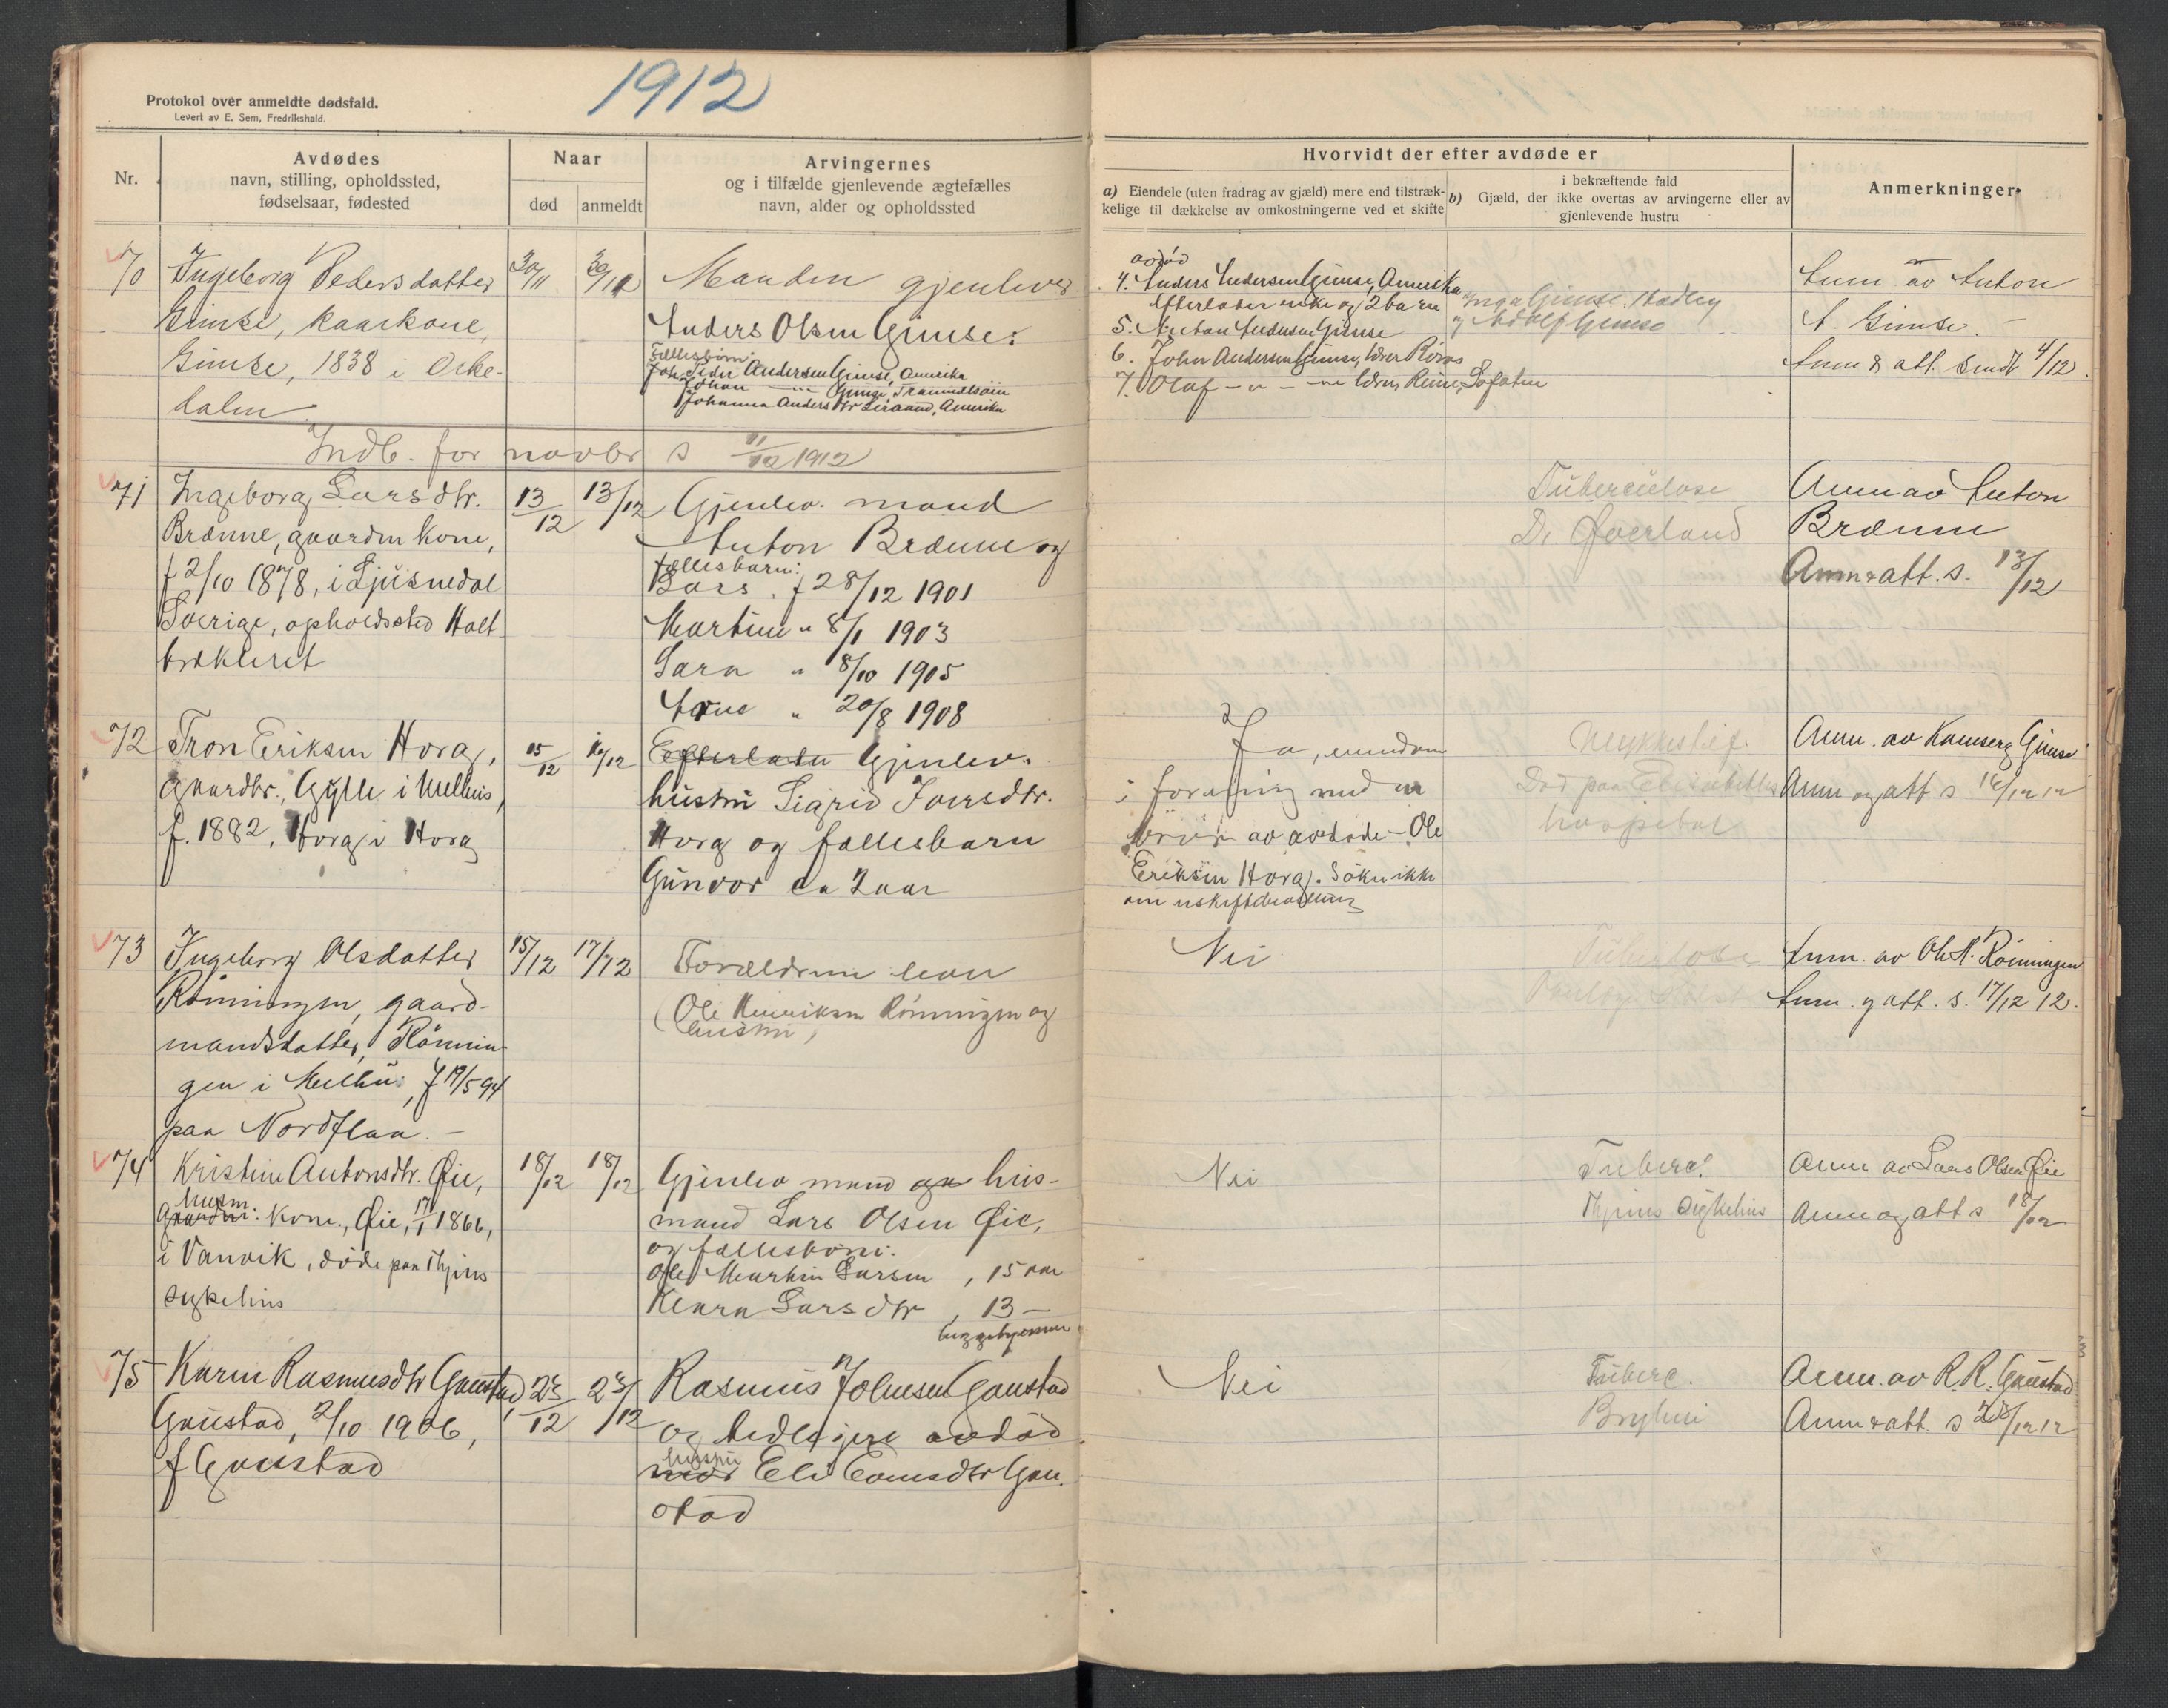 1912
Protokol over anmeldte dødsfald.
Levert av E. Sem, Fredrikshald.
Nr.
Avdødes
navn, stilling, opholdssted,
fødselsaar, fødested
Naar
død
anmeldt
Arvingernes
og i tilfælde gjenlevende ægtefælles
navn, alder og opholdssted
Hvorvidt der efter avdøde er
a) Eiendele (uten fradrag av gjæld) mere end tilstræk-
kelige til dækkelse av omkostningerne ved et skifte
i bekræftende fald
b) Gjæld, der ikke overtas av arvingerne eller av
gjenlevende hustru
Anmerkninger
70
Ingeborg Pedersdatter
Gimse, kaarkone,
Gimse, 1838 i Orke-
dalen
30/11
30/11
Manden gjenlever
Anders Olsen Gimse:
Fællesbörn:
Peder Andersen Gimse, Amerika
Johan — " — Gimse,
Johanna Andersdtr Leraand, Amerika
avdöd
4. Anders Andersen Gimse, Amerika
Efterlader enke og 2 barn
Inga Gimse, Hadley
og Adolf Gimse
5. Anton Andersen Gimse
6. John Andersen Gimse, Røros
7. Olaf — " — " Reine, Lofoten
Anm av Anton
A. Gimse. —
Anm & att. sendt 4/12.
Indb. for novbr s 11/12 1912
71
Ingeborg Larsdtr.
Brænne, gaardm kone,
f 2/10 1878, i Ljusnedal
Sverige, opholdssted Halt-
brækleret
13/12
13/12
Gjenlev. mand
Anton Brænne og
fællesbarn:
Lars, f 28/12 1901
Martine " 8/1 1903
Sara " 8/10 1905
Arne " 20/8 1908
Tuberculose
Dr Øverland
Anm av Anton
Brænne
Anm & att. s. 13/12
72
Tron Eriksen Horg,
gaardbr., Gylle i Melhus,
f. 1882, Horg i Horg
15/12
16/12
Efterlader Gjenlev.
hustru Sigrid Iversdtr.
Horg og fællesbarn
Gunvor ca 2 aar
Ja, eiendom
i forening med en
bror av avdøde - Ole
Eriksen Horg. Søker ikke
om uskiftebevilling
Død paa Elisabeths
hospital
Anm. av Gimse
Anm og att s 16/12 12
73
Ingeborg Olsdatter
Rönningen, gaard-
mandsdatter, Rönnin-
gen i Melhus, f 19/5 94
paa Nordflaa. —
15/12
17/12
Forældrene lever
(Ole Henriksen Rønningen og
hustru)
Nei
Tuberkulose
Anm. av Ole H. Rönningen
Anm. og att. s. 17/12 12.
74
Kristine Antonsdtr. Øie,
husm
gaardbr. kone, Øie, 17/1 1866,
i Vanvik, døde paa Thjems
sykehus
18/12
18/12
Gjenlev mand og hus-
mand Lars Olsen Øie,
og fællesbörn:
Ole Martin Larsen, 15 aar
Klara Larsdtr, 13 —
begge hjemme
Nei
Tuberc.
Thjems sykehus
Anm av Lars Olsen Øie
Anm og att s 18/12
75
Karen Rasmusdtr Gaustad,
Gaustad, 2/10 1906,
f Gaustad
23/12
23/12
Rasmus Johnsen Gaustad
og tidligere avdöd
hustru
mor Eli Evensdtr Gau-
stad
Nei
Tuberc.
Bryhni
Anm. av R. R. Gaustad
Anm & att. s 23/12 12